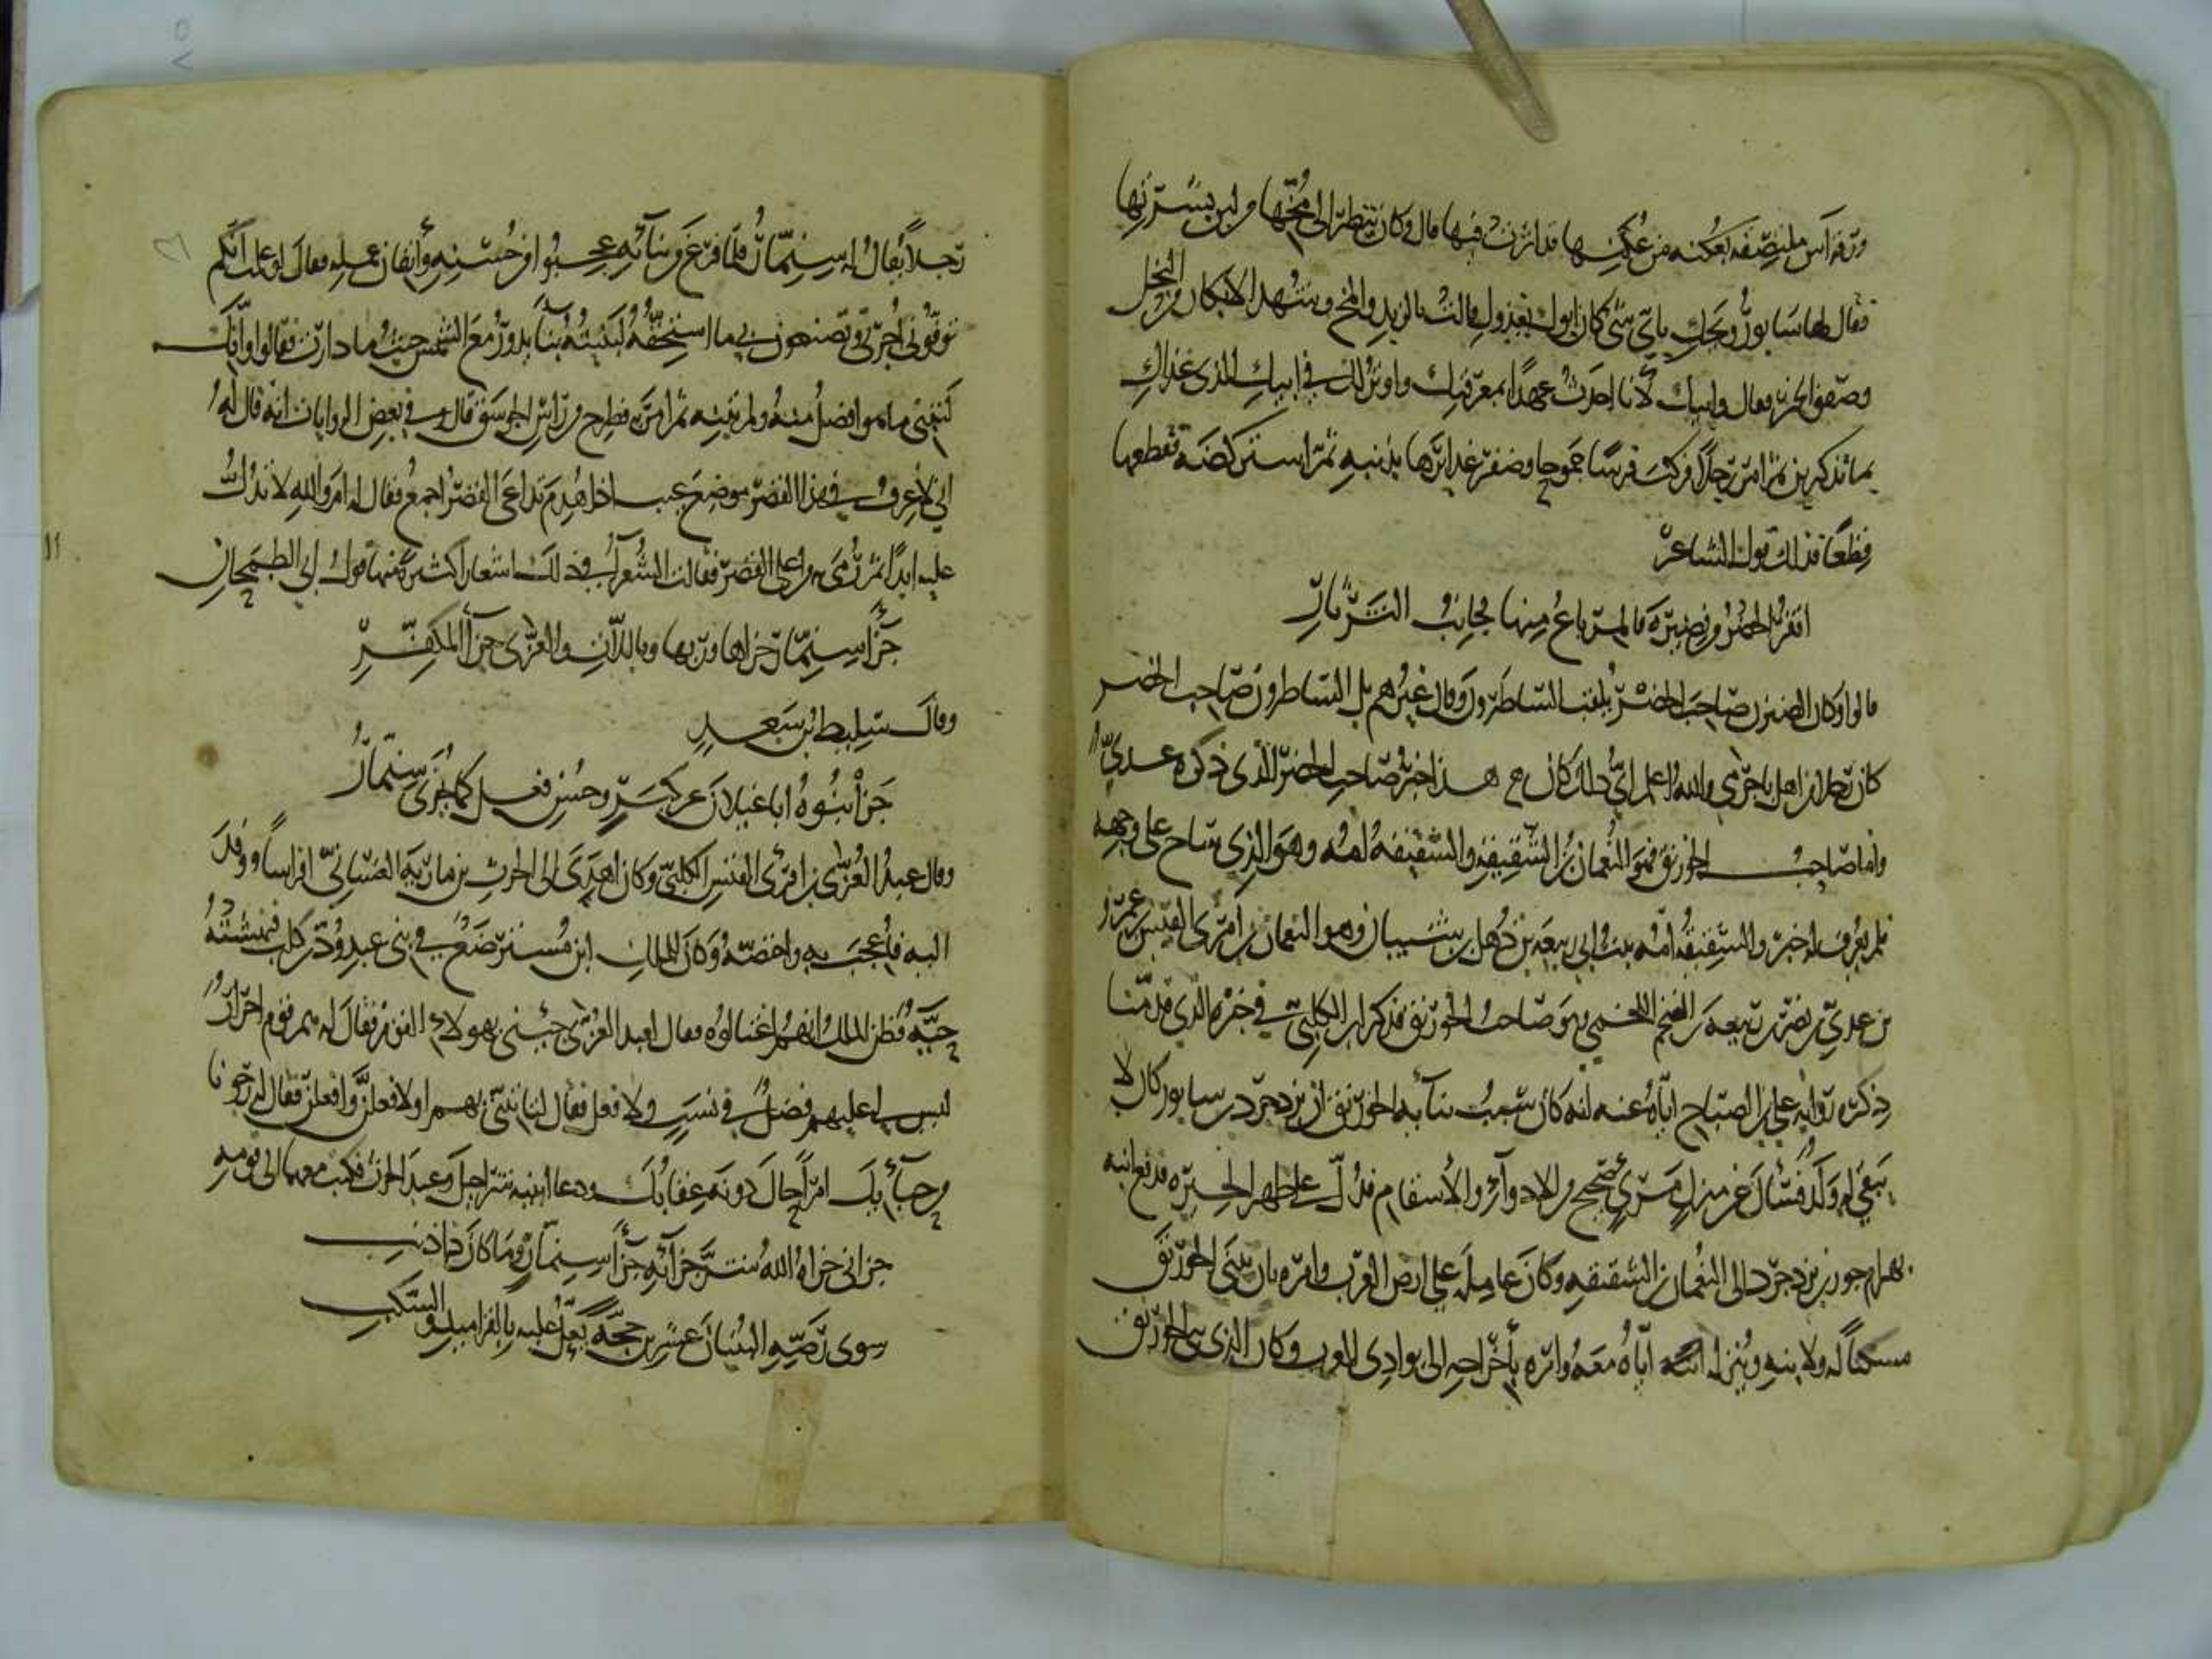 ورقة آس ملتصقة بعكنة من عكنها قد اثرت فيها قال وكان ينظر الى مخها من لين بشرتها
فقال لها سابور ويحك باي شي كان ابوك يغذوك قالت بالزبد والمخ وشهد الابكار من النحل
وصفو الخمر فقال وابيك لأنا احدث عهدا بمعرفتك واوثر لك في ابيك الذي غذاك
بما تذكرين ثم امر رجلا فركب فرسا جموحا وضفر غدايرها بذنبه ثم استركضه فقطعها
قطعا فذلك قول الشاعر
اقفر الحضر من نضيرة فالمرباع منها فجانب الثرثار
قالوا وكان الضيزن صاحب الحضر يلقب الساطرون وقال غيرهم بل الساطرون صاحب الحضر
كان رجلا من اهل باجرمى والله اعلم اي ذلك كان هذا خبر صاحب الحضر الذي ذكره عدي
واما صاحب الخورنق فهو النعمان بن الشقيقة والشقيقة امه وهو الذي ساح على وجهه
فلم يعرف له خبر والشقيقة امه بنت ابي ربيعة بن ذهل بن شيبان وهو النعمان بن امرئ القيس بن عمرو
بن عدي بن نصر بن ربيعة بن الضخم اللخمي وهو صاحب الخورنق فذكر ابن الكلبي في خبره الذي قدمنا
ذكره رواية علي بن الصباح اياه عنه انه كان سبب بنائه الخورنق ان يزدجرد بن سابور كان لا
يبقى له ولد فسأل عن منزل مرئ صحيح من الادواء والأسقام فدل على ظهر الحيرة فدفع ابنه
بهرام جور بن يزدجرد الى النعمان بن الشقيقة وكان عامله على ارض العرب وامره بان يبني الخورنق
مسكنا له ولابنه وينزله اياه معه وامره بأخراجه الى بوادي العرب وكان الذي بنى الخورنق
رجلا يقال له سنمار فلما فرغ من بنائه عجبوا من حسنه وأتقان عمله فقال لو علمت انكم
توفوني اجرتي وتصنعون بي ما استحقه لبنيته بنآ يدور مع الشمس حيث ما دارت فقالوا وانك
لتبني ما هو افضل منه ولم تبنه ثم امر به فطرح من راس الجوسق قال وفي بعض الروايات انه قال له
اني لأعرف في هذا القصر موضع عيب اذا هدم تداعى القصر اجمع فقال له اما والله لا تدل
عليه ابدا ثم رمي به من اعلى القصر فقالت الشعرآ في ذلك اشعارا كثيرة منها قول ابي الطمحان
جزآ سنمار جزاها وربها وباللات والعزى جزآ المكفر
وقال سليط بن سعد
جزى بنوه ابا غيلان عن كبر وحسن فعل كما يجزى سنمار
وقال عبد العزى بن امرئ القيس الكلبي وكان اهدى الى الحرث بن مارية الغساني افراسا ووفد
اليه فأعجب به واختصه وكان للملك ابن مسترضع في بني عبد ود من كلب فنهشته
حية فظن الملك انهم اغتالوه فقال لعبد العزى جئني بهولاء القوم فقال له هم قوم احرار
ليس لي عليهم فضل في نسب ولا فعل فقال لتأتيني بهم او لافعلن وافعلن فقال له رجونا
من حبآئك امرا حال دونه عقابك ودعا ابنيه شراحيل وعبد الحرث فكتب معهما الى قومه
جزاني جزاه الله شر جزآئه جزآ سنمار وما كان ذا ذنب
سوى رصه البنيان عشرين حجة يعل عليه بالقراميد والسكب